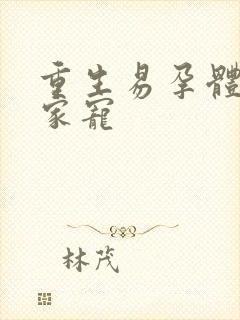 重生易孕體
家寵
林茂